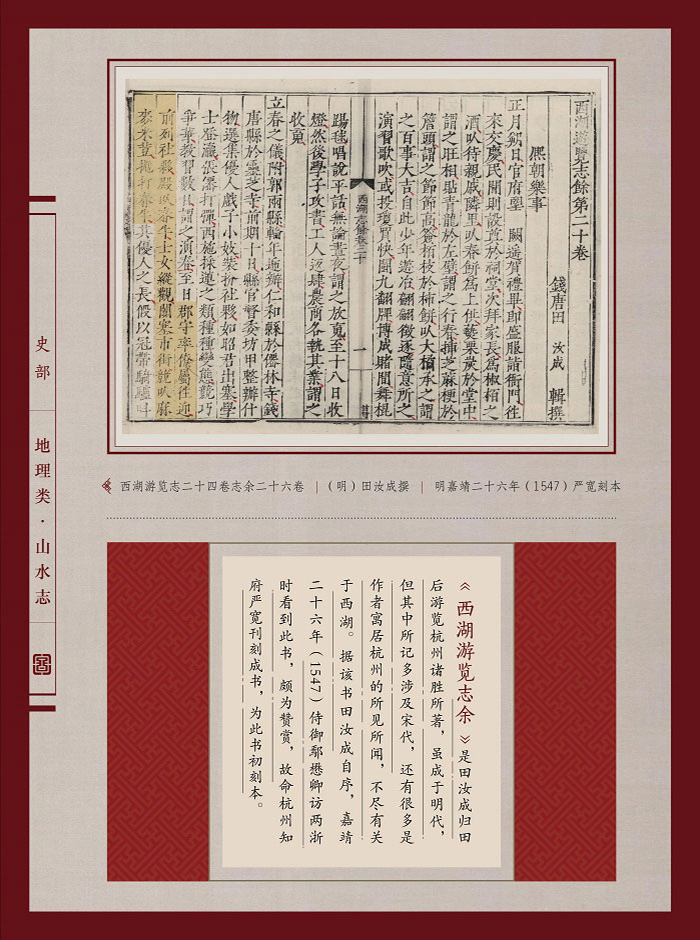 西湖遊覽志餘第二十卷
錢唐田 汝成 輯撰
熈朝樂事
正月朔日官府望 闕遙賀禮畢即盛服詣衙門徃
來交慶民間則設奠於祠堂次拜家長為椒栢之
酒以待親戚隣里以春餅為上供爇栗炭於堂中
謂之旺相貼青龍於左壁謂之行春插芝蔴梗於
簷頭謂之節節高簽栢枝於柿餅以大橘承之謂
之百事大吉自此少年遊冶翩翩徵逐隨意所之
演習歌吹或投瓊買快鬬九翻牌博戲賭閒舞棍
西湖志餘卷二十
一
踢毬唱說平話無論晝夜謂之放魂至十八日收
燈然後學子攻書工人返肆農商各執其業謂之
收魂
立春之儀附郭兩縣輪年遞辦仁和縣於僊林寺錢
唐縣於靈芝寺前期十日縣官督委坊甲整辦什
物選集優人戲子小妓裝扮社夥如昭君出塞學
士登瀛張僊打彈西施採蓮之類種種變態競巧
爭華教習數日謂之演春至日郡守率僚屬徃迎
前列社夥殿以春牛士女縱觀闐塞市街競以蔴
麥米荳拋打春牛其優人之長假以冠帶騎驢叫
史部
地理类·山水志
西湖游览志二十四卷志余二十六卷 | （明）田汝成撰 | 明嘉靖二十六年（1547）严宽刻本
《西湖游览志余》是田汝成归田
后游览杭州诸胜所著，虽成于明代，
但其中所记多涉及宋代，还有很多是
作者寓居杭州的所见所闻，不尽有关
于西湖。据该书田汝成自序，嘉靖
二十六年（1547）侍御鄢懋卿访两浙
时看到此书，颇为赞赏，故命杭州知
府严宽刊刻成书，为此书初刻本。